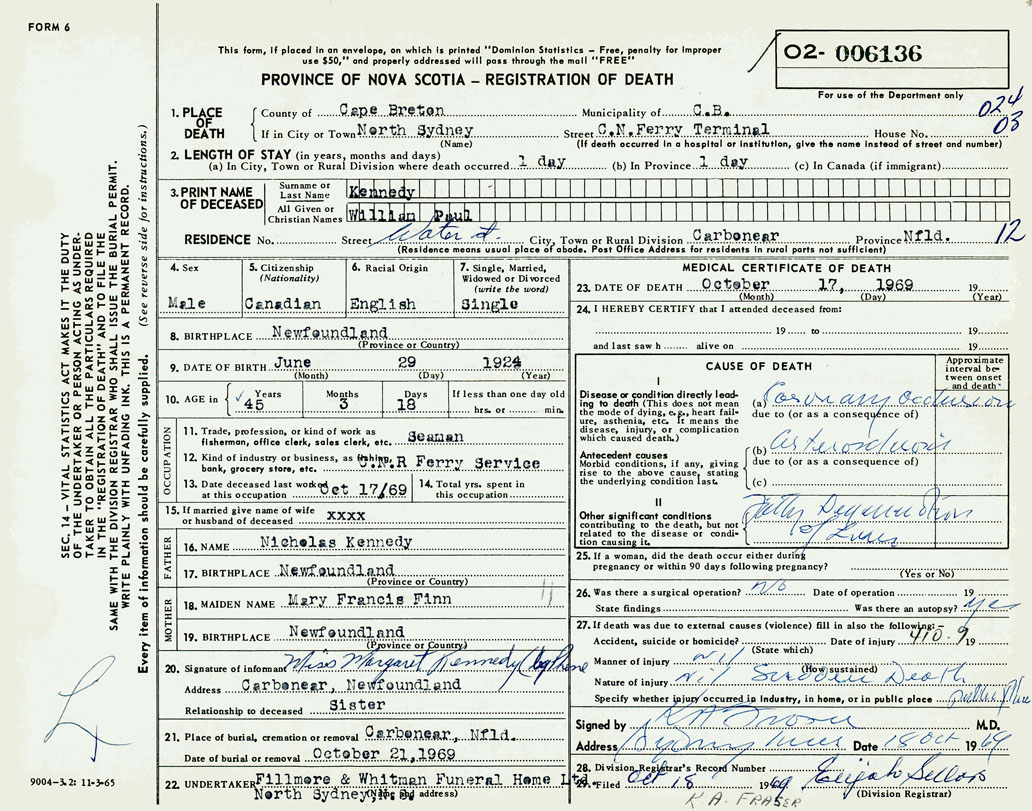 FORM 6
This form, if placed in an envelope, on which is printed "Dominion Statistics – Free, penalty for improper
use $50," and properly addressed will pass through the mail "FREE"
PROVINCE OF NOVA SCOTIA – REGISTRATION OF DEATH
02- 006136
For use of the Department only
024
03
1. PLACE OF DEATH County of Cape Breton Municipality of C.B.
If in City or Town North Sydney Street C.N.Ferry Terminal House No.
(Name) (If death occurred in a hospital or institution, give the name instead of street and number)
2. LENGTH OF STAY (in years, months and days)
(a) In City, Town or Rural Division where death occurred 1 day (b) In Province 1 day (c) In Canada (if immigrant)
3. PRINT NAME OF DECEASED
Surname or Last Name Kennedy
All Given or Christian Names William Paul
RESIDENCE No. Street Water st. City, Town or Rural Division Carbonear Province Nfld. 12
(Residence means usual place of abode. Post Office Address for residents in rural parts not sufficient)
4. Sex Male
5. Citizenship (Nationality) Canadian
6. Racial Origin English
7. Single, Married, Widowed or Divorced (write the word) Single
8. BIRTHPLACE Newfoundland
(Province or Country)
9. DATE OF BIRTH June 29 1924
(Month) (Day) (Year)
10. AGE in Years 45 Months 3 Days 18 If less than one day old
hrs. or min.
OCCUPATION
11. Trade, profession, or kind of work as
fisherman, office clerk, sales clerk, etc. Seaman
12. Kind of industry or business, as fishing,
bank, grocery store, etc. C.N.R Ferry Service
13. Date deceased last worked
at this occupation Oct 17/69
14. Total yrs. spent in
this occupation
15. If married give name of wife
or husband of deceased xxxx
FATHER
16. NAME Nicholas Kennedy
17. BIRTHPLACE Newfoundland
(Province or Country)
MOTHER
18. MAIDEN NAME Mary Francis Finn
19. BIRTHPLACE Newfoundland
(Province or Country)
20. Signature of informant Miss Margaret Kennedy (by Phone
Address Carbonear, Newfoundland
Relationship to deceased Sister
21. Place of burial, cremation or removal Carbonear, Nfld.
Date of burial or removal October 21,1969
22. UNDERTAKER Fillmore & Whitman Funeral Home Ltd.
North Sydney, N.S.
(Name and address)
MEDICAL CERTIFICATE OF DEATH
23. DATE OF DEATH October 17, 1969 19
(Month) (Day) (Year)
24. I HEREBY CERTIFY that I attended deceased from:
19 to 19
and last saw h alive on 19
CAUSE OF DEATH
Approximate interval between onset and death
I
Disease or condition directly leading to death (This does not mean
the mode of dying, e.g., heart failure, asthenia, etc. It means the
disease, injury, or complication
which caused death.)
(a) Coronary Occlusion
due to (or as a consequence of)
Antecedent causes
Morbid conditions, if any, giving
rise to the above cause, stating
the underlying condition last.
(b)
due to (or as a consequence of)
(c)
II
Other significant conditions
contributing to the death, but not
related to the disease or condition causing it.
Fatty Degeneration
of Liver
25. If a woman, did the death occur either during
pregnancy or within 90 days following pregnancy?
(Yes or No)
26. Was there a surgical operation? No Date of operation 19
State findings Was there an autopsy? yes
27. If death was due to external causes (violence) fill in also the following:–
Accident, suicide or homicide? Date of injury 410.9 19
(State which)
Manner of injury nil
(How sustained)
Nature of injury nil Sudden Death
Specify whether injury occurred in industry, in home, or in public place public place
Signed by M.D.
Address Sydney Mines Date 18 Oct 1969
28. Division Registrar's Record Number
29. Filed Oct 18 1969 Elijah Sellars
(Division Registrar)
K A. FRASER
SEC. 14 – VITAL STATISTICS ACT MAKES IT THE DUTY
OF THE UNDERTAKER OR PERSON ACTING AS UNDER-
TAKER TO OBTAIN ALL THE PARTICULARS REQUIRED
IN THE "REGISTRATION OF DEATH" AND TO FILE THE
SAME WITH THE DIVISION REGISTRAR WHO SHALL ISSUE THE BURIAL PERMIT.
WRITE PLAINLY WITH UNFADING INK. THIS IS A PERMANENT RECORD.
Every item of information should be carefully supplied. (See reverse side for instructions.)
9004–3.2: 11-3-65